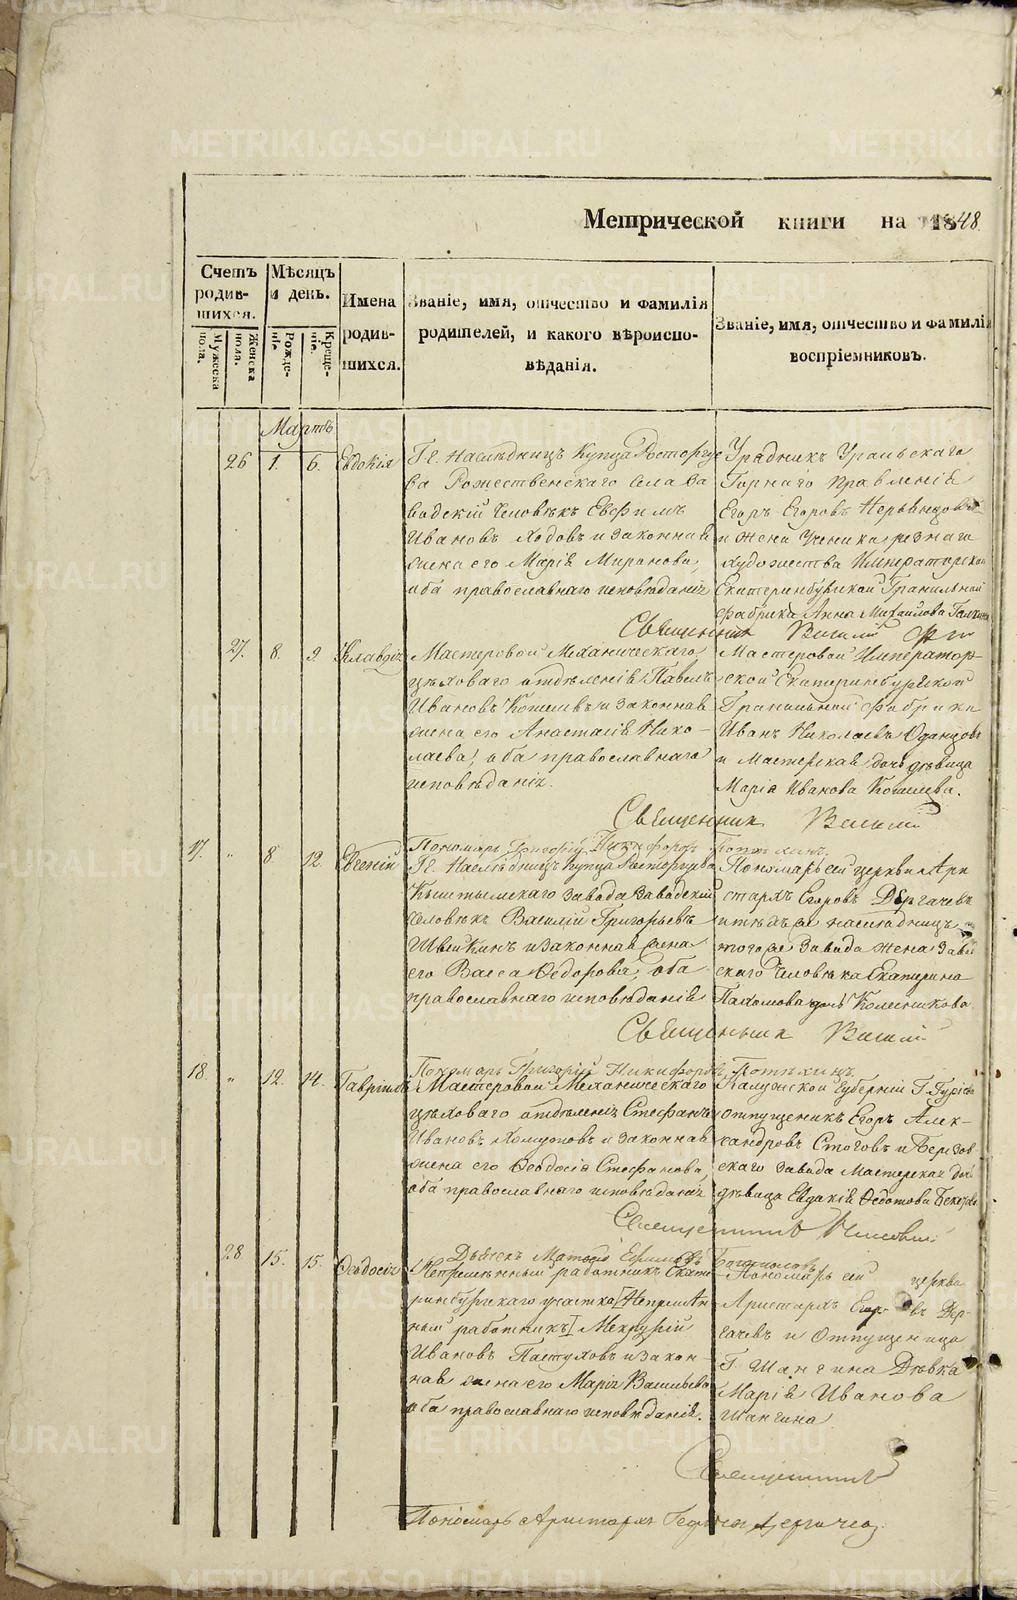 METRIKI.GASO-URAL.RU
Метрической книги на 1848.
Счетъ родив-шихся.
Мужеска пола.
Женска пола.
Мѣсяцъ и день.
Рожде-ніе.
Креще-ніе.
Имена родив-шихся.
Званіе, имя, отчество и фамилія
родителей, и какого вѣроиспо-
вѣданія.
Званіе, имя, отчество и фамилія
воспріемниковъ.
Мартъ
26 1. 6. Евдокія
Гг. Наслѣдницъ Купца Расторгуе
ва Рожественскаго села за
водскій человѣкъ Евфимъ
Ивановъ Ходовъ и законная
жена его Марія Миронова,
оба православнаго исповѣданія
Урядникъ Уральскаго
Горнаго правленія
Егоръ Егоровъ
и жена Ученика рѣзнаго
художества Императорской
Екатеринбургской Гранильной
фабрики Анна Михаилова Галкина
Священникъ Василій
27. 8. 9. Клавдія
Мастеровой Механическаго
цѣховаго отдѣленія Павелъ
Ивановъ Кошелевъ и законная
жена его Анастасія Нико-
лаева, оба православнаго
исповѣданія.
Мастеровой Император-
ской Екатеринбургской
Гранильной фабрики
Иванъ Николаевъ Одинцовъ
и Мастерская дочь дѣвица
Марія Иванова Кошелева.
Священник Василій
Пономарь Григорій Никифоровъ Потѣхинъ.
17. " 8 12 Евгеній
Гг. Наслѣдницъ Купца Расторгуева
Кыштымскаго завода заводскій
человѣкъ Василій Григорьевъ
Швейкинъ и законная жена
его Васса Ѳедорова, оба
православнаго исповѣданія
Пономарь сей церкви Ари
стархъ Егоровъ Дергачевъ
и тѣхъ же наслѣдницъ
тогоже завода жена заво
скаго человѣка Екатерина
Пахомова дочь Колесникова
Священникъ Василій
Пономарь Григорій Никифоровъ Потѣхинъ
18. " 12. 14. Гавріилъ
Мастеровой Механическаго
цѣховаго отдѣленія Стефанъ
Ивановъ Хомутовъ и законная
жена его Ѳеодосія Стефанова,
оба православнаго исповѣданія
Калужской Губерніи Г. Гурьева
отпущеникъ Егоръ Алек-
сандровъ Стоговъ и Березов
скаго завода Мастерская дочь
дѣвица Евдокія Ѳедотова
Священникъ
Дьячекъ Матвѣй Ефимовъ Богомоловъ
28 15. 15. Ѳеодосія
Непремѣнный работникъ Екате
ринбургскаго участка [Непремѣн
ный работникъ] Меркурій
Ивановъ Пастуховъ и закон-
ная жена его Марія Васильева
оба православнаго исповѣданія.
Пономарь сей церкви
Аристархъ Егоровъ Дер-
гачевъ и отпущеница
Г. Шангина Дѣвка
Марія Иванова
Шангина
Священникъ
Пономарь Аристархъ Дергачевъ.